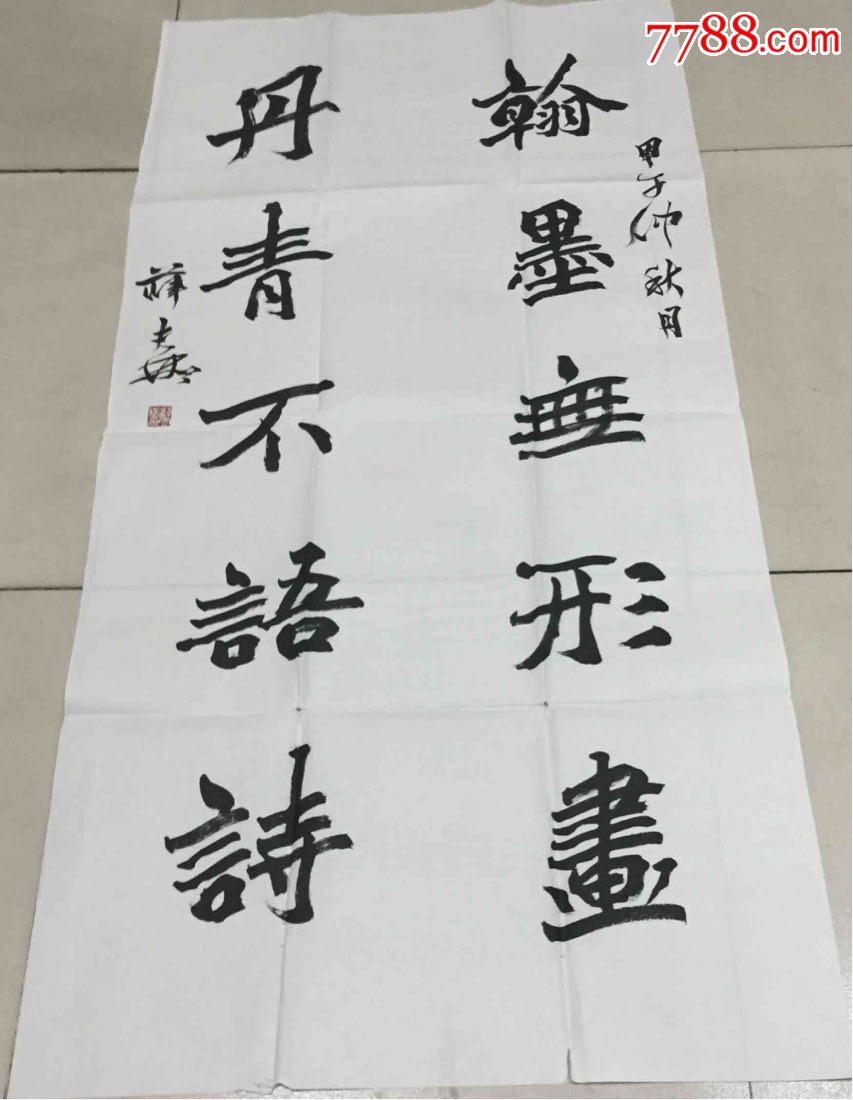 7788.com
甲午仲秋月
翰墨無形畫
丹青不語詩